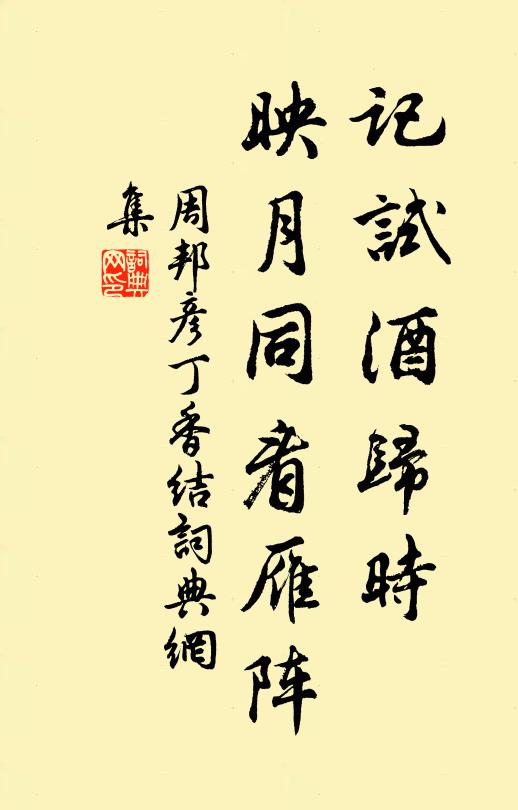 记試酒歸時
映月同看雁阵
周邦彦丁香结詞典網
集
詞典
网印